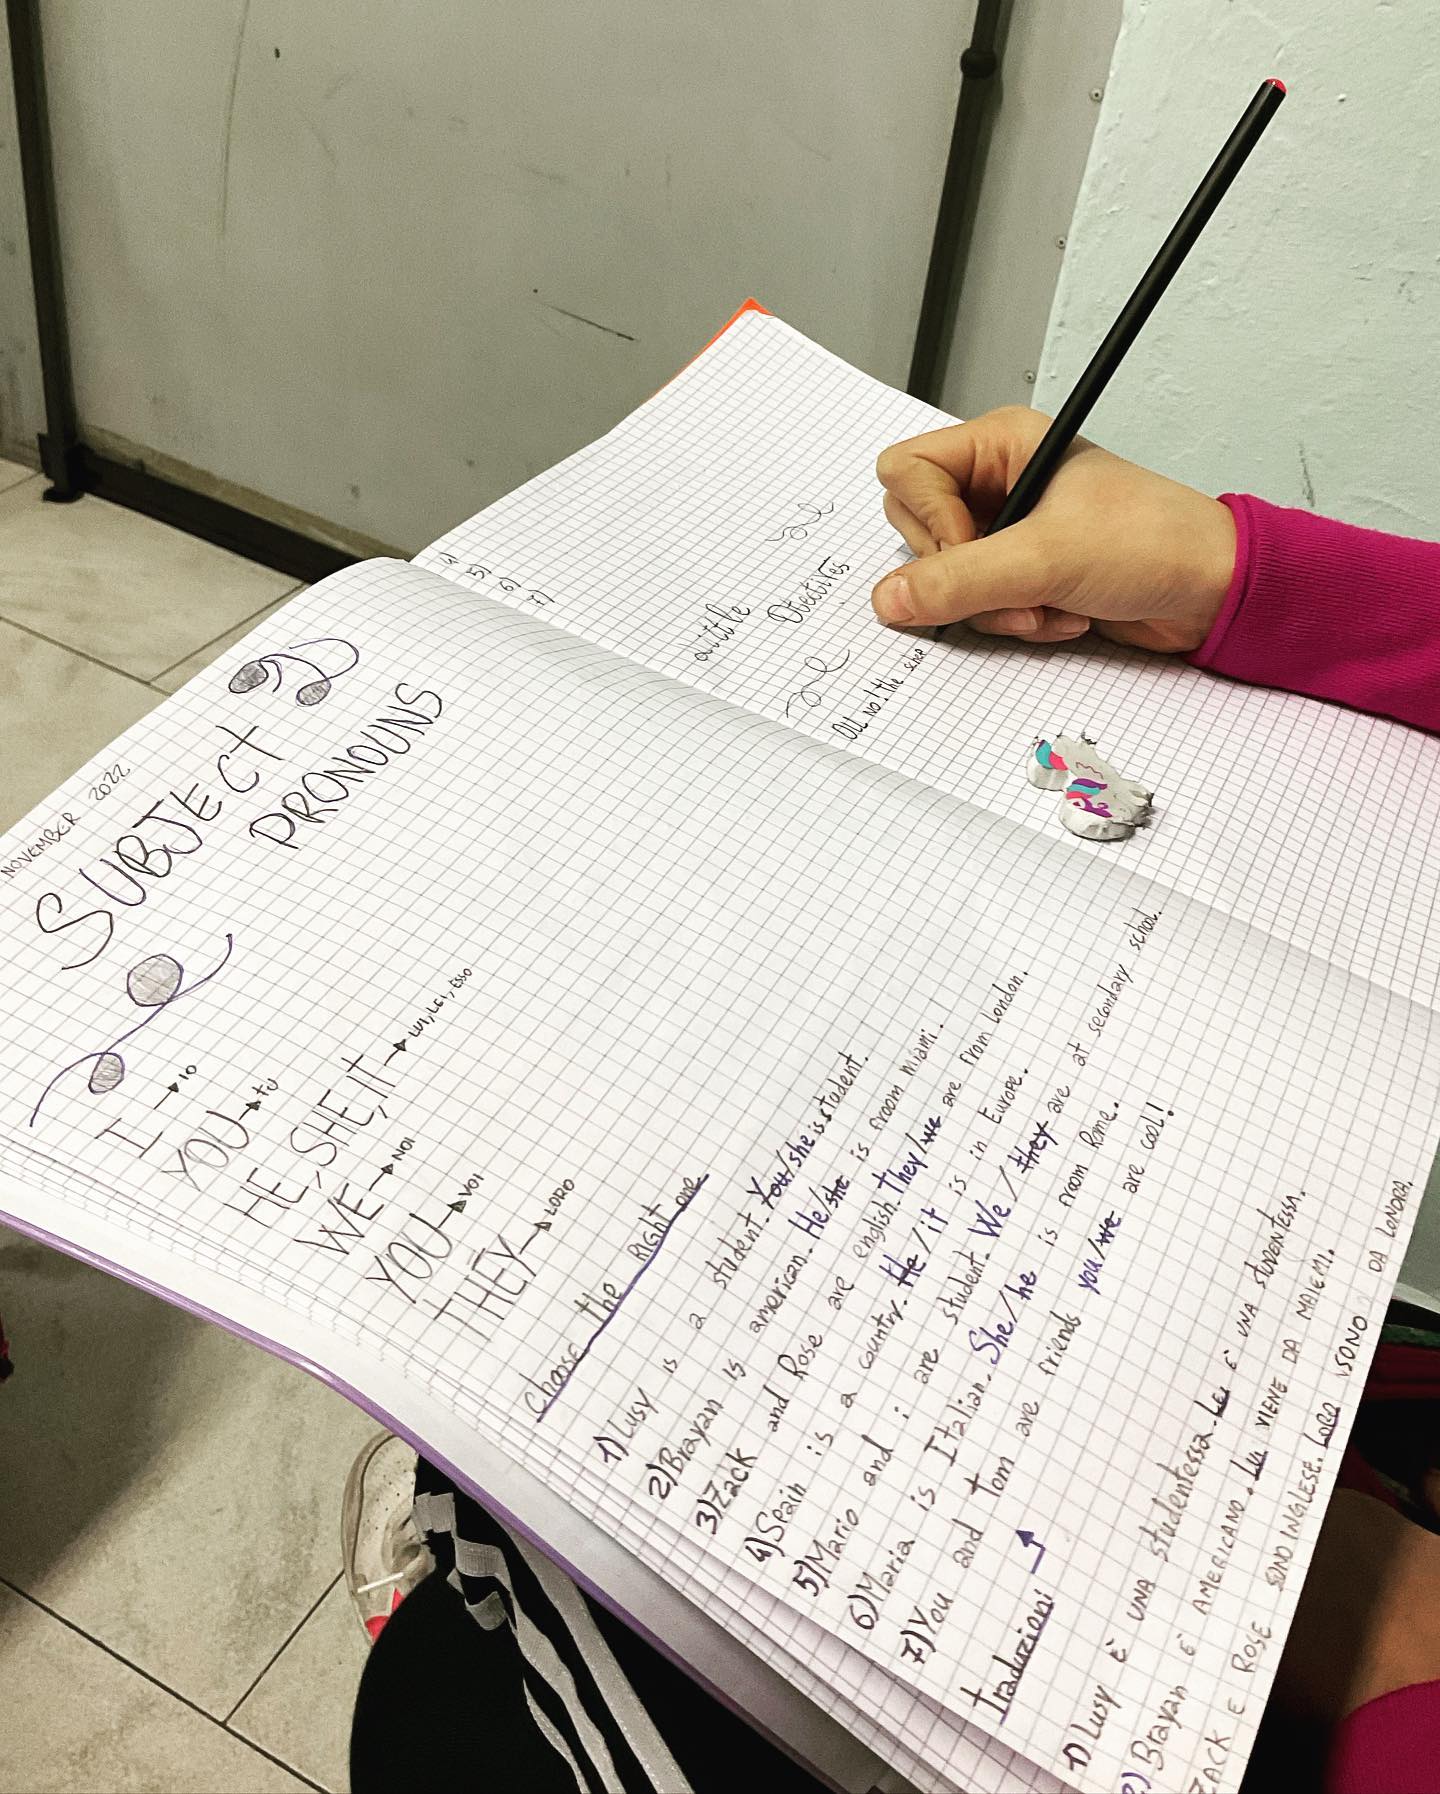 NOVEMBER 2022
SUBJECT
PRONOUNS
I → IO
YOU → TU
HE, SHE, IT → LUI, LEI, ESSO
WE → NOI
YOU → VOI
THEY → LORO
Choose the Right one
1) Lusy is a student. You/she is student.
2) Brayan is american. He/she is froom miami.
3) Zack and Rose are english. They/we are from London.
4) Spain is a country. He/it is in Europe.
5) Mario and i are student. We/they are at secondary school.
6) Maria is Italian. She/he is froom Rome.
7) You and tom are friends you/we are cool!
traduzioni →
1) Lusy È UNA studentessa. Lei È UNA STUDENTESSA.
2) Brayan È AMERICANO. Lui VIENE DA MAIEMI.
ZACK E ROSE SONO INGLESE. LORO SONO DA LONDRA.
4)
5)
6)
7)
the